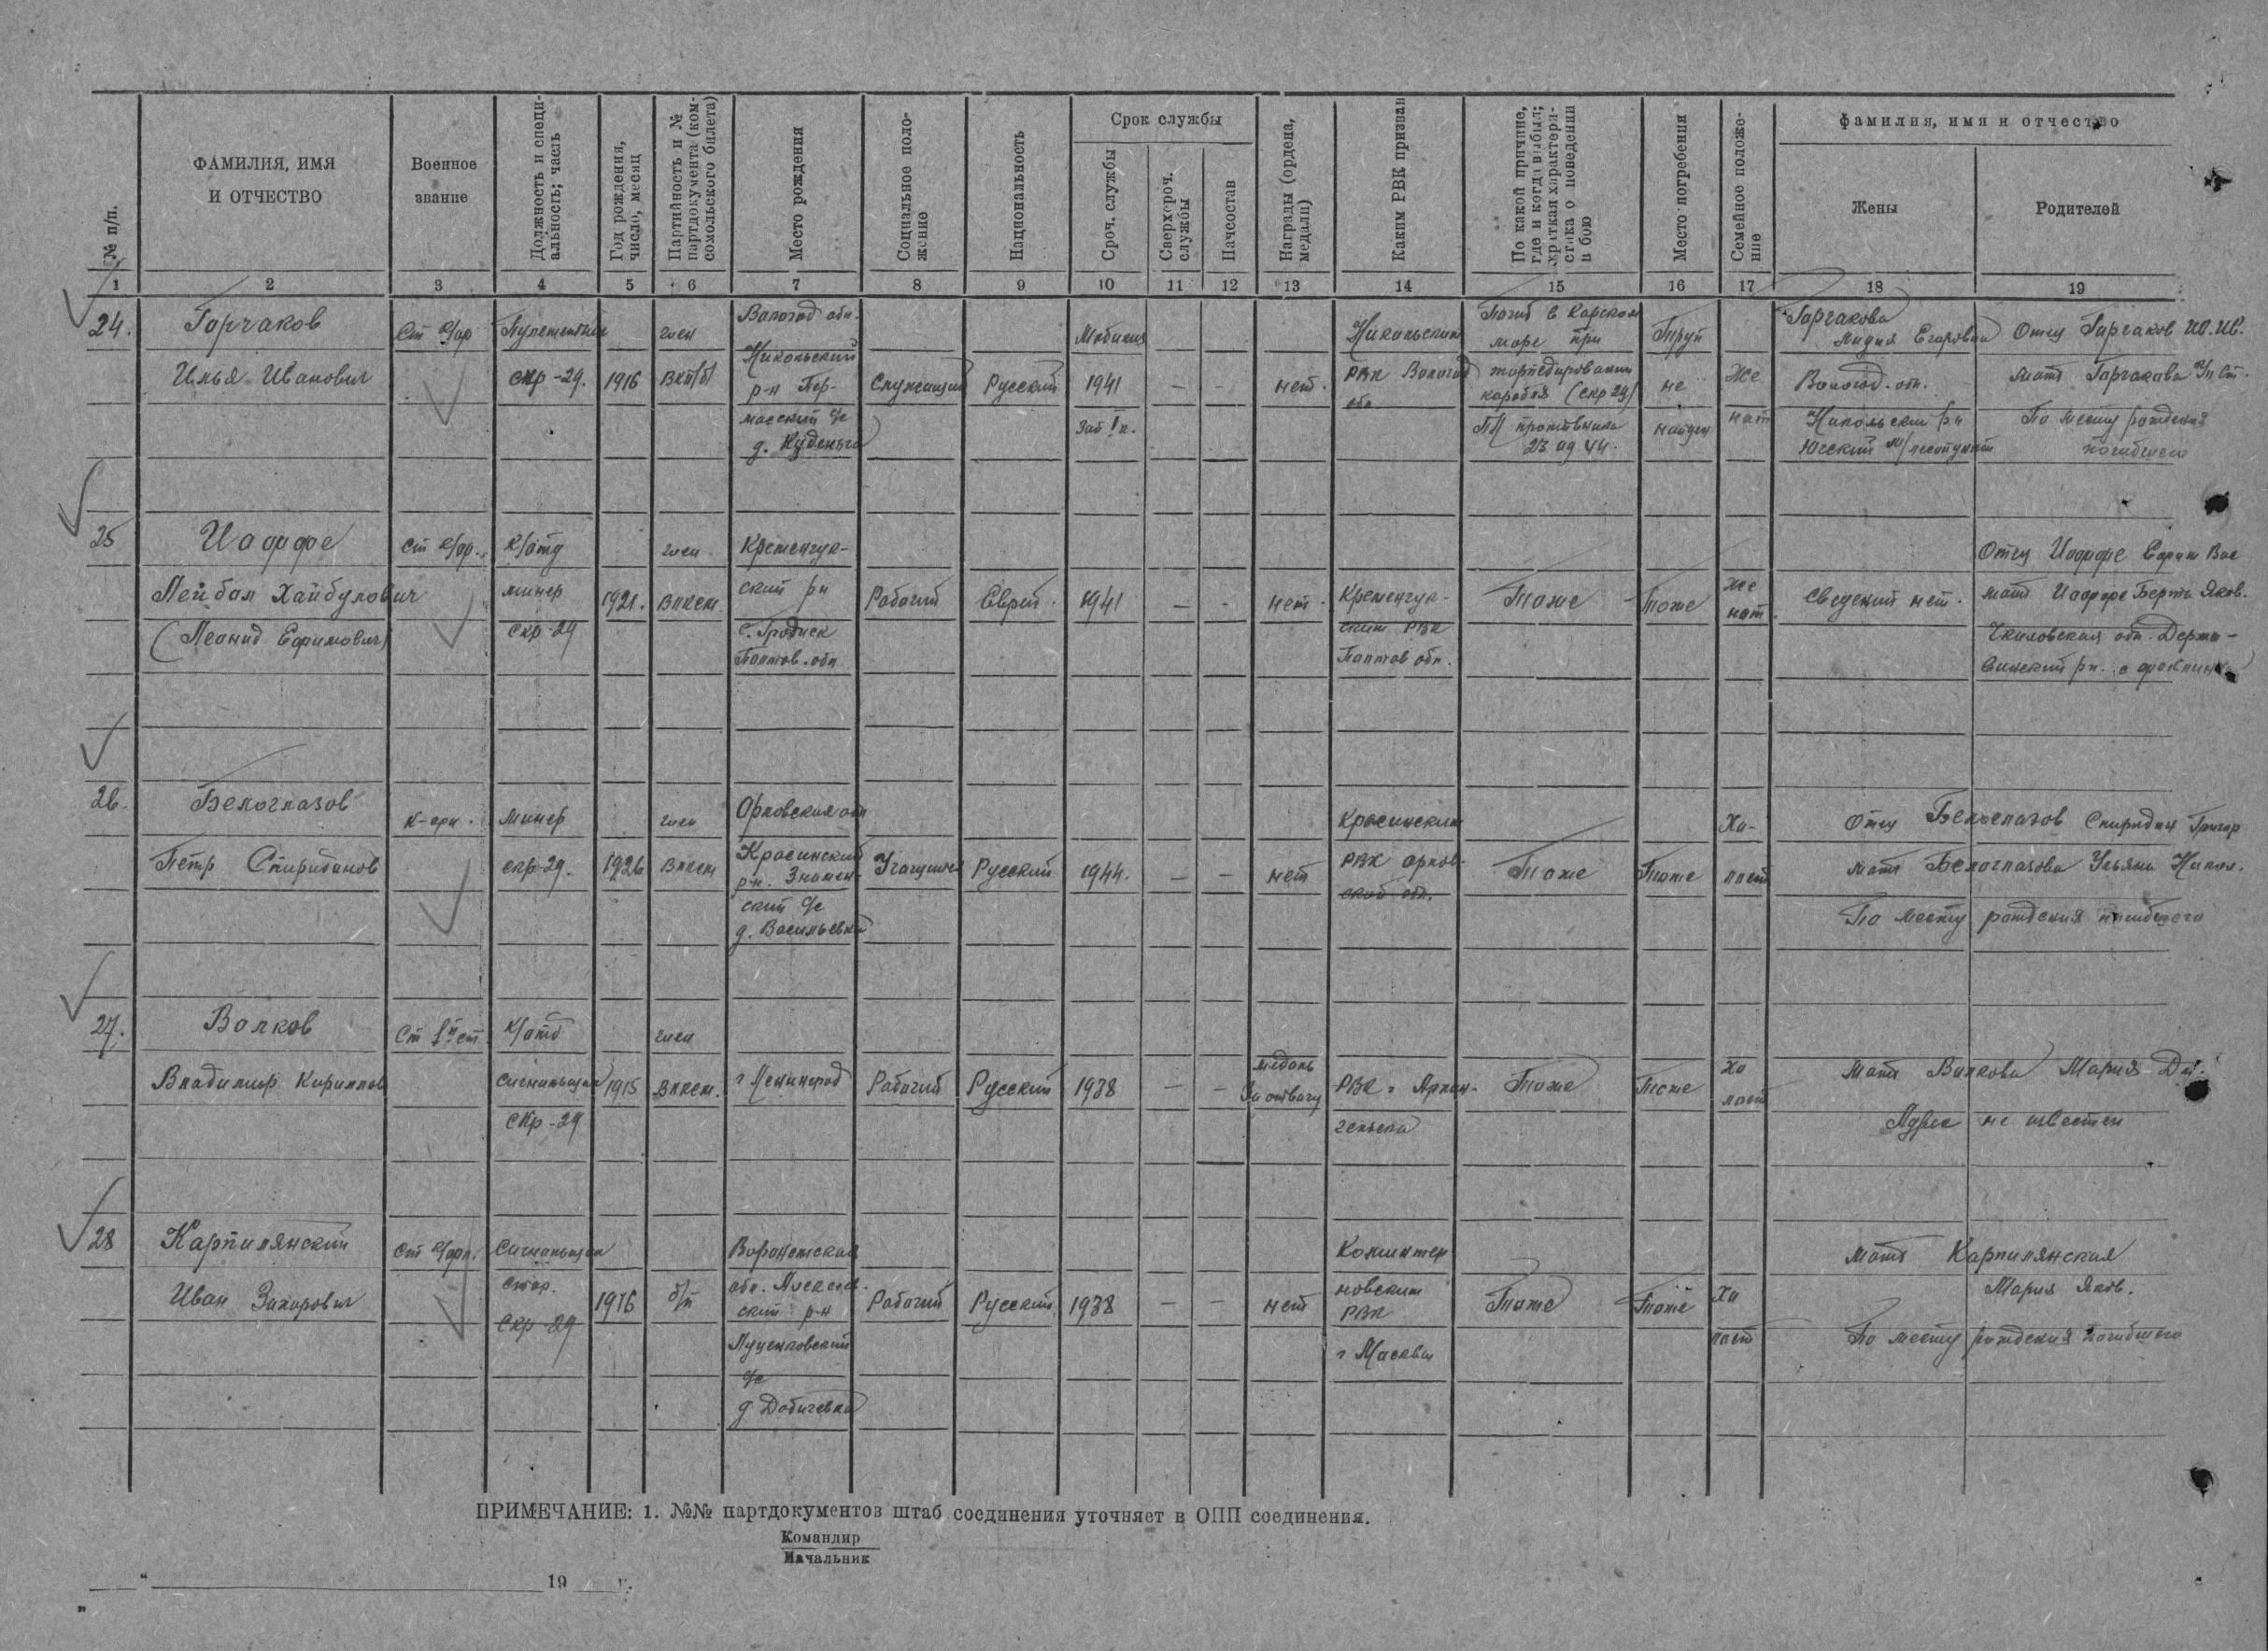 № п/п.
ФАМИЛИЯ, ИМЯ
И ОТЧЕСТВО
Военное
звание
Должность и специ-
альность; часть
Год рождения,
число, месяц
Партийность и №
партдокумента (ком-
сомольского билета)
Место рождения
Социальное поло-
жение
Национальность
Срок службы
Сроч. службы
Сверхсроч.
службы
Начсостав
Награды (ордена,
медали)
Каким РВК призван
По какой причине,
где и когда выбыл;
краткая характери-
стика о поведении
в бою
Место погребения
Семейное положе-
ние
фамилия, имя и отчество
Жены
Родителей
1 2 3 4 5 6 7 8 9 10 11 12 13 14 15 16 17 18 19
24.
Горчаков
Илья Иванович
Ст к/фр
Пулеметчик
скр-29.
1916
член
ВКП/б/
Вологод обл.
Никольский
р-н Пер-
масский с/с
д. Куденьга
Служащий
Русский
Мобилиз
1941
Зап I к.
— —
нет.
Никольским
РВК Вологод
обл
Погиб в Карском
море при
торпедировании
корабля (скр 29)
ПЛ противника
23 09 44.
Труп
не
найден
Же
нат
Горчакова
Лидия Егоровна
Вологод. обл.
Никольский рн
Отец Горчаков Ив. Ив.
мать Горчакова
По месту рождения
погибшего
25
Иоффе
Лейбал Хайбулович
(Леонид Ефимович)
Ст к/фр.
к/отд
минер
скр-29
1921.
член
ВЛКСМ
Кременчуг-
ский рн
с. Градиск
Полтов. обл
Рабочий
Еврей.
1941
— —
нет.
Кременчуг-
ским РВК
Полтов обл.
Тоже
Тоже
Же
нат
Сведений нет.
Отец Иоффе Ефим
мать Иоффе Берта Яков.
Чкаловская обл. Держа-
винский рн.
26.
Белоглазов
Петр Спиридонов
К-фл.
Минер
скр-29.
1926
член
ВЛКСМ
Орловская обл
Краснинский
рн. Знамен-
ский с/с
д. Васильевка
Учащийся
Русский
1944.
— —
нет
Краснинским
РВК орлов-
ской обл.
Тоже
Тоже
Хо-
лост
Отец Белоглазов Спиридон Григор
мать Белоглазова Ульяна Никол.
По месту рождения погибшего
27.
Волков
Владимир Кириллов
Ст 1й ст
К/отд
Сигнальщик
СКР-29
1915
член
ВЛКСМ.
г Ленинград
Рабочий
Русский
1938
— —
медаль
За отвагу
РВК г Архан-
гельска
Тоже
Тоже
Хо
лост
Мать Волкова Мария
Адрес не известен
28
Карпилянский
Иван Захарович
Ст к/фл.
Сигнальщик
стар.
Скр-29
1916
б/п
Воронежская
обл. Алексеев-
ский р-н
Луценковский
с/с
д Добичевка
Рабочий
Русский
1938
— —
нет
Коминтер
новским
РВК
г Москвы
Тоже
Тоже
Хо
лост
Мать Карпилянская
Мария Яков.
По месту рождения погибшего
ПРИМЕЧАНИЕ: 1. №№ партдокументов штаб соединения уточняет в ОПП соединения.
Командир
Начальник
" 19 г.